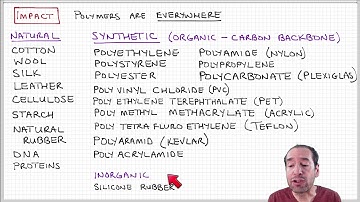 IMPACT POLYMERS ARE EVERYWHERE
NATURAL SYNTHETIC (ORGANIC - CARBON BACKBONE)
COTTON POLYETHYLENE POLYAMIDE (NYLON)
WOOL POLYSTYRENE POLYPROPYLENE
SILK POLYESTER POLYCARBONATE (PLEXIGLAS)
LEATHER POLY VINYL CHLORIDE (PVC)
CELLULOSE POLY ETHYLENE TEREPHTHALATE (PET)
STARCH POLY METHYL METHACRYLATE (ACRYLIC)
NATURAL RUBBER POLY TETRA FLURO ETHYLENE (TEFLON)
POLYARAMID (KEVLAR)
DNA POLY ACRYLAMIDE
PROTEINS
INORGANIC
SILICONE RUBBER